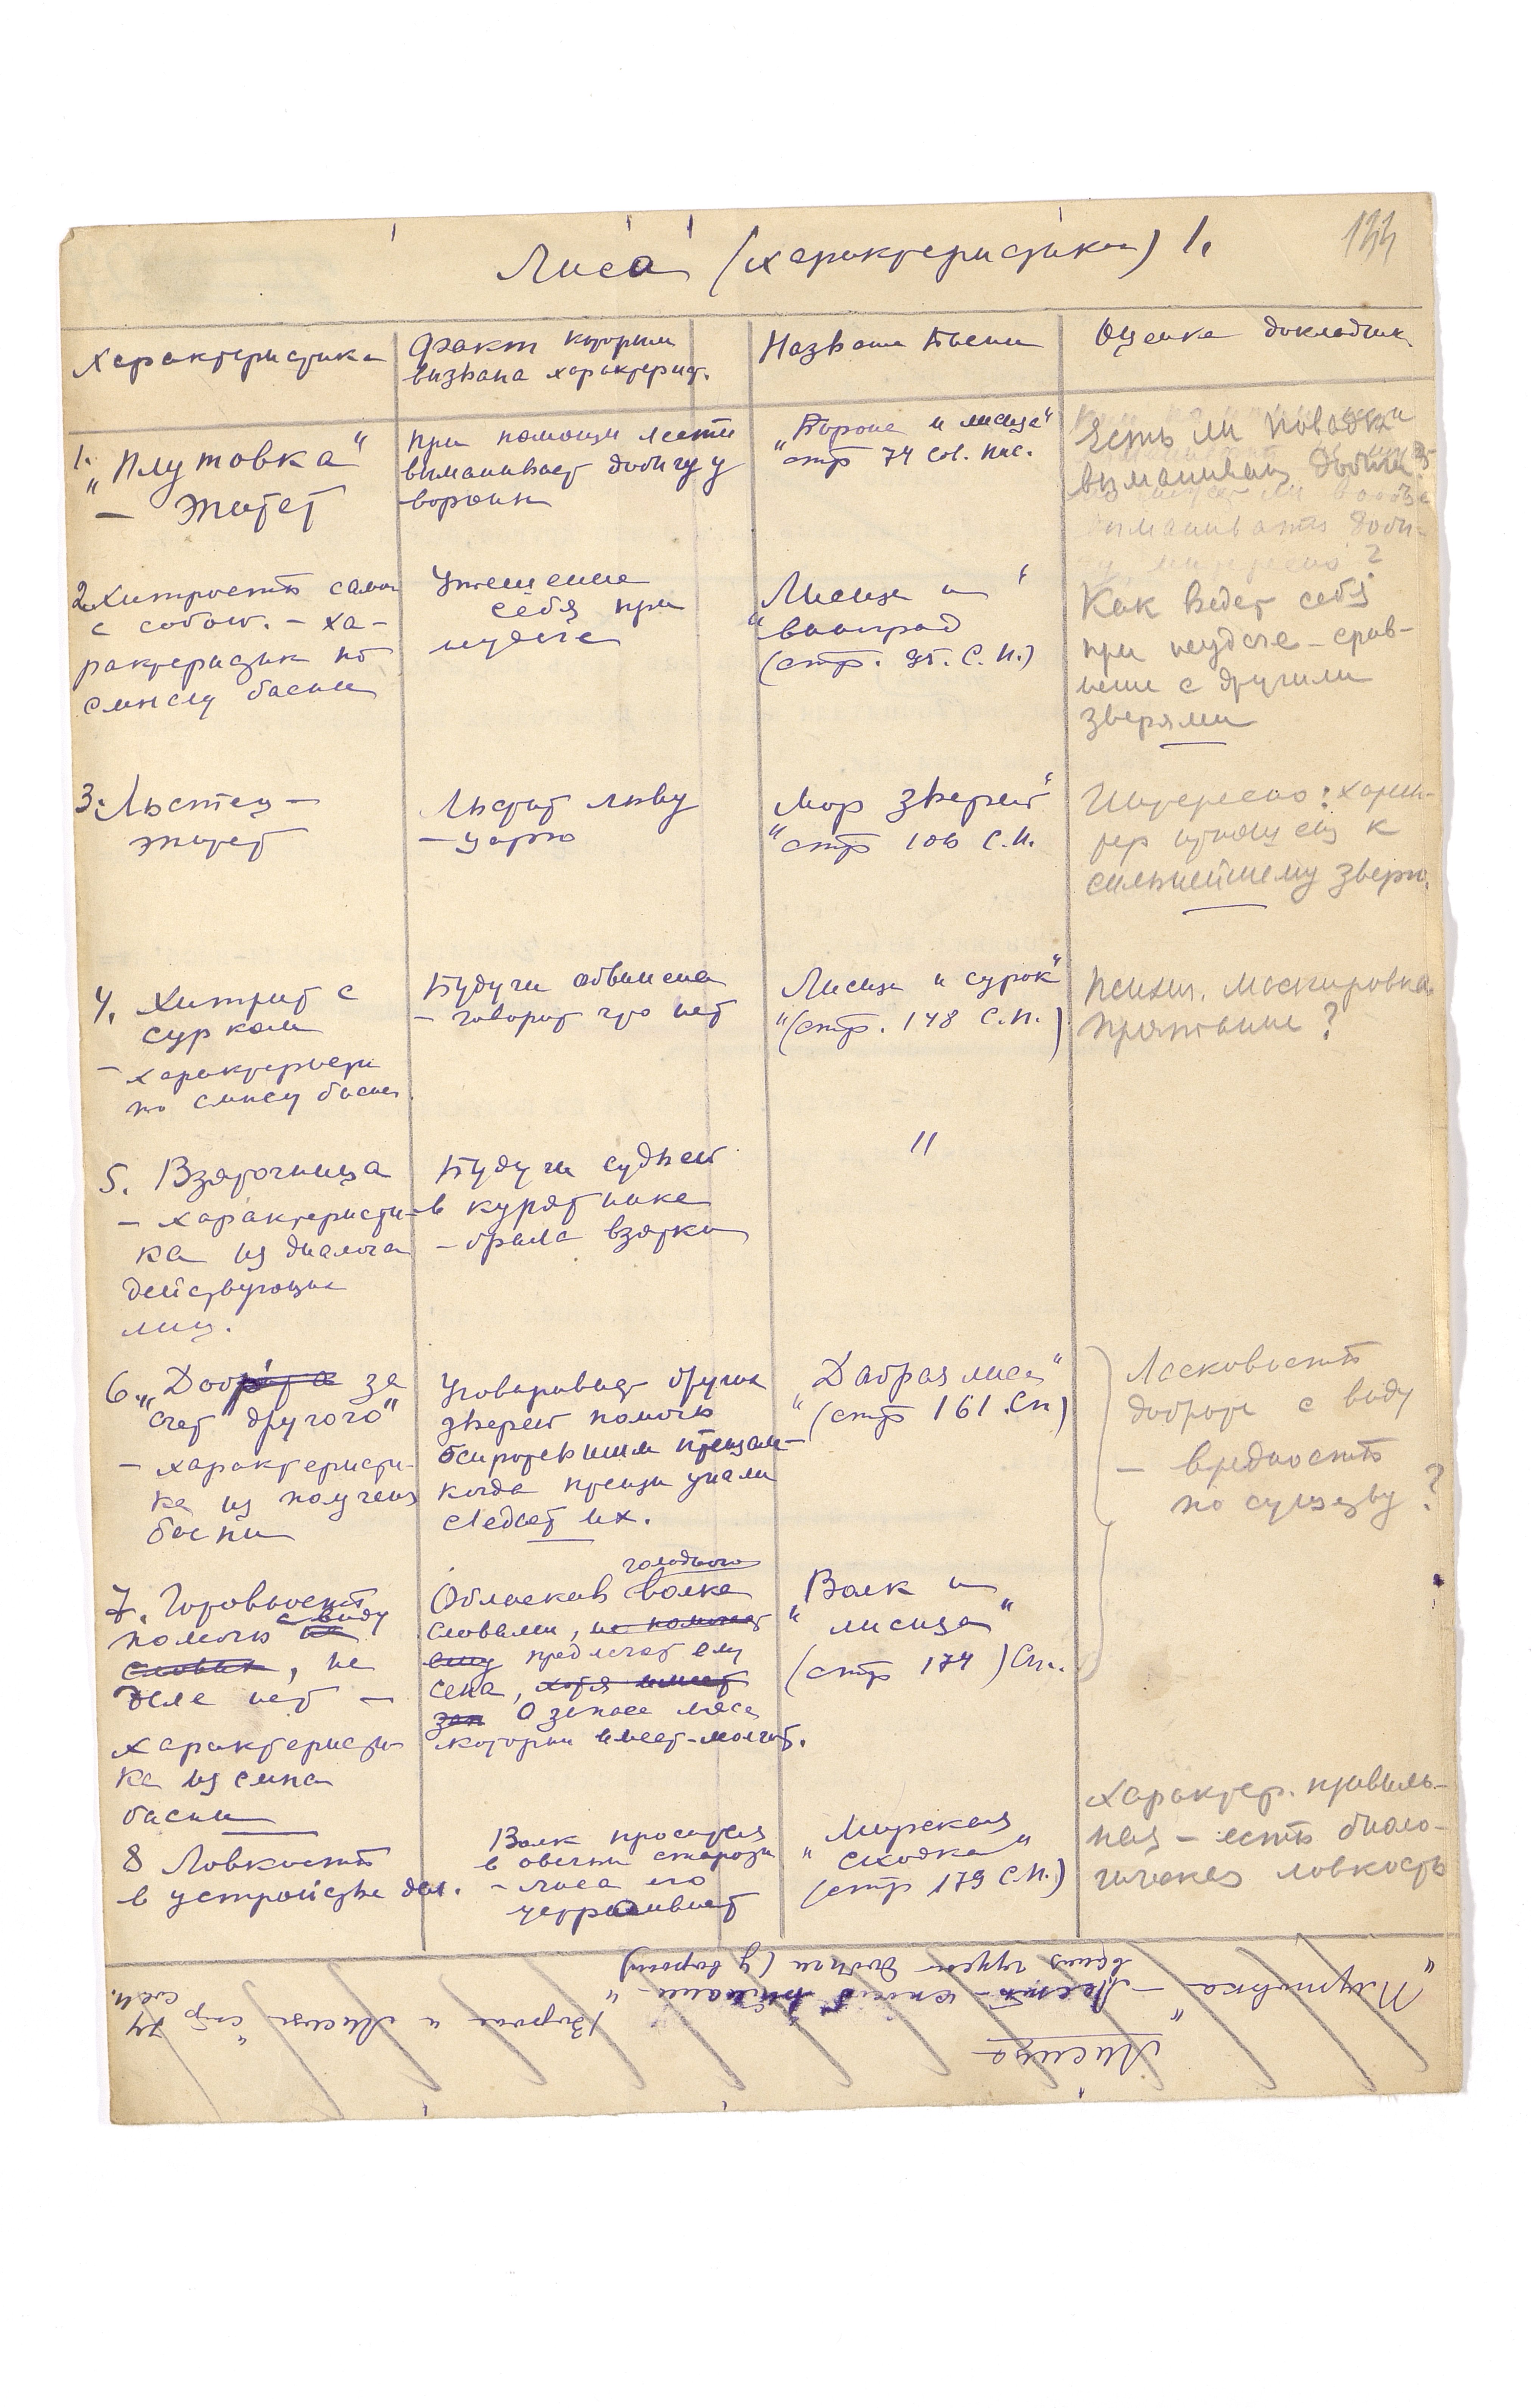 133
Лиса (характеристика) 1.
Характеристика
Факт которым
вызвана характерист.
Название басни
Оценка докладчик.
1. „Плутовка“
— эпитет
при помощи лести
выманивает добычу у
вороны
„Ворона и лисица“
стр 74 Сов. пис.
Есть ли повадки
выманиван добычи
2. Хитрость сама
с собою. – ха-
рактеристик по
смыслу басни
Утешение
себя при
неудаче
„Лисица и
виноград“
(стр. 95. С. П.)
Как ведет себя
при неудаче – срав-
нение с другими
зверями
3. Льстец –
эпитет
Льстит льву
– царю
„Мор зверей“
стр 106 С.П.
Интересно: харак-
тер к
сильнейшему зверю.
4. Хитрит с
сурком
– характеристи
по смыслу басни
Будучи обвинена
– говорит что нет
„Лисица и сурок“
(стр. 148 С.П.)
Психич. маскировка
?
5. Взяточница
– характеристи-
ка из диалога
действующих
лиц.
Будучи судьей
в курятнике
– брала взятки
"
6. „Доброта за
счет другого“
– характеристи-
ка из поучения
басни
Уговаривает других
зверей помочь
осиротевшим птенцам –
когда птенцы упали
съедает их.
„Добрая лиса“
(стр 161. Сп)
Ласковость
доброта с виду
– вредность
по существу ?
7. Готовность
с виду
помочь на
словах, на
деле нет –
характеристи-
ка из смысла
басни
голодного
Обласкав волка
словами, не поможет
ему предлагает ему
сена, хотя имеет
зап О запасе мяса
который имеет – молчит.
„Волк и
лисица“
(стр 174) Сп.
8 Ловкость
в устройстве дел.
Волк просится
в овечьи старосты
– лиса его
устраивает
„Мирская
сходка“
(стр 179 С.П.)
Характер. правиль-
ная – есть биоло-
гическая ловкость
Лисица
„Плутовка“ – Лесть – способ вымани-
вания чужой добычи (у вороны)
„Ворона и Лисица“ стр 74
Сов.п.